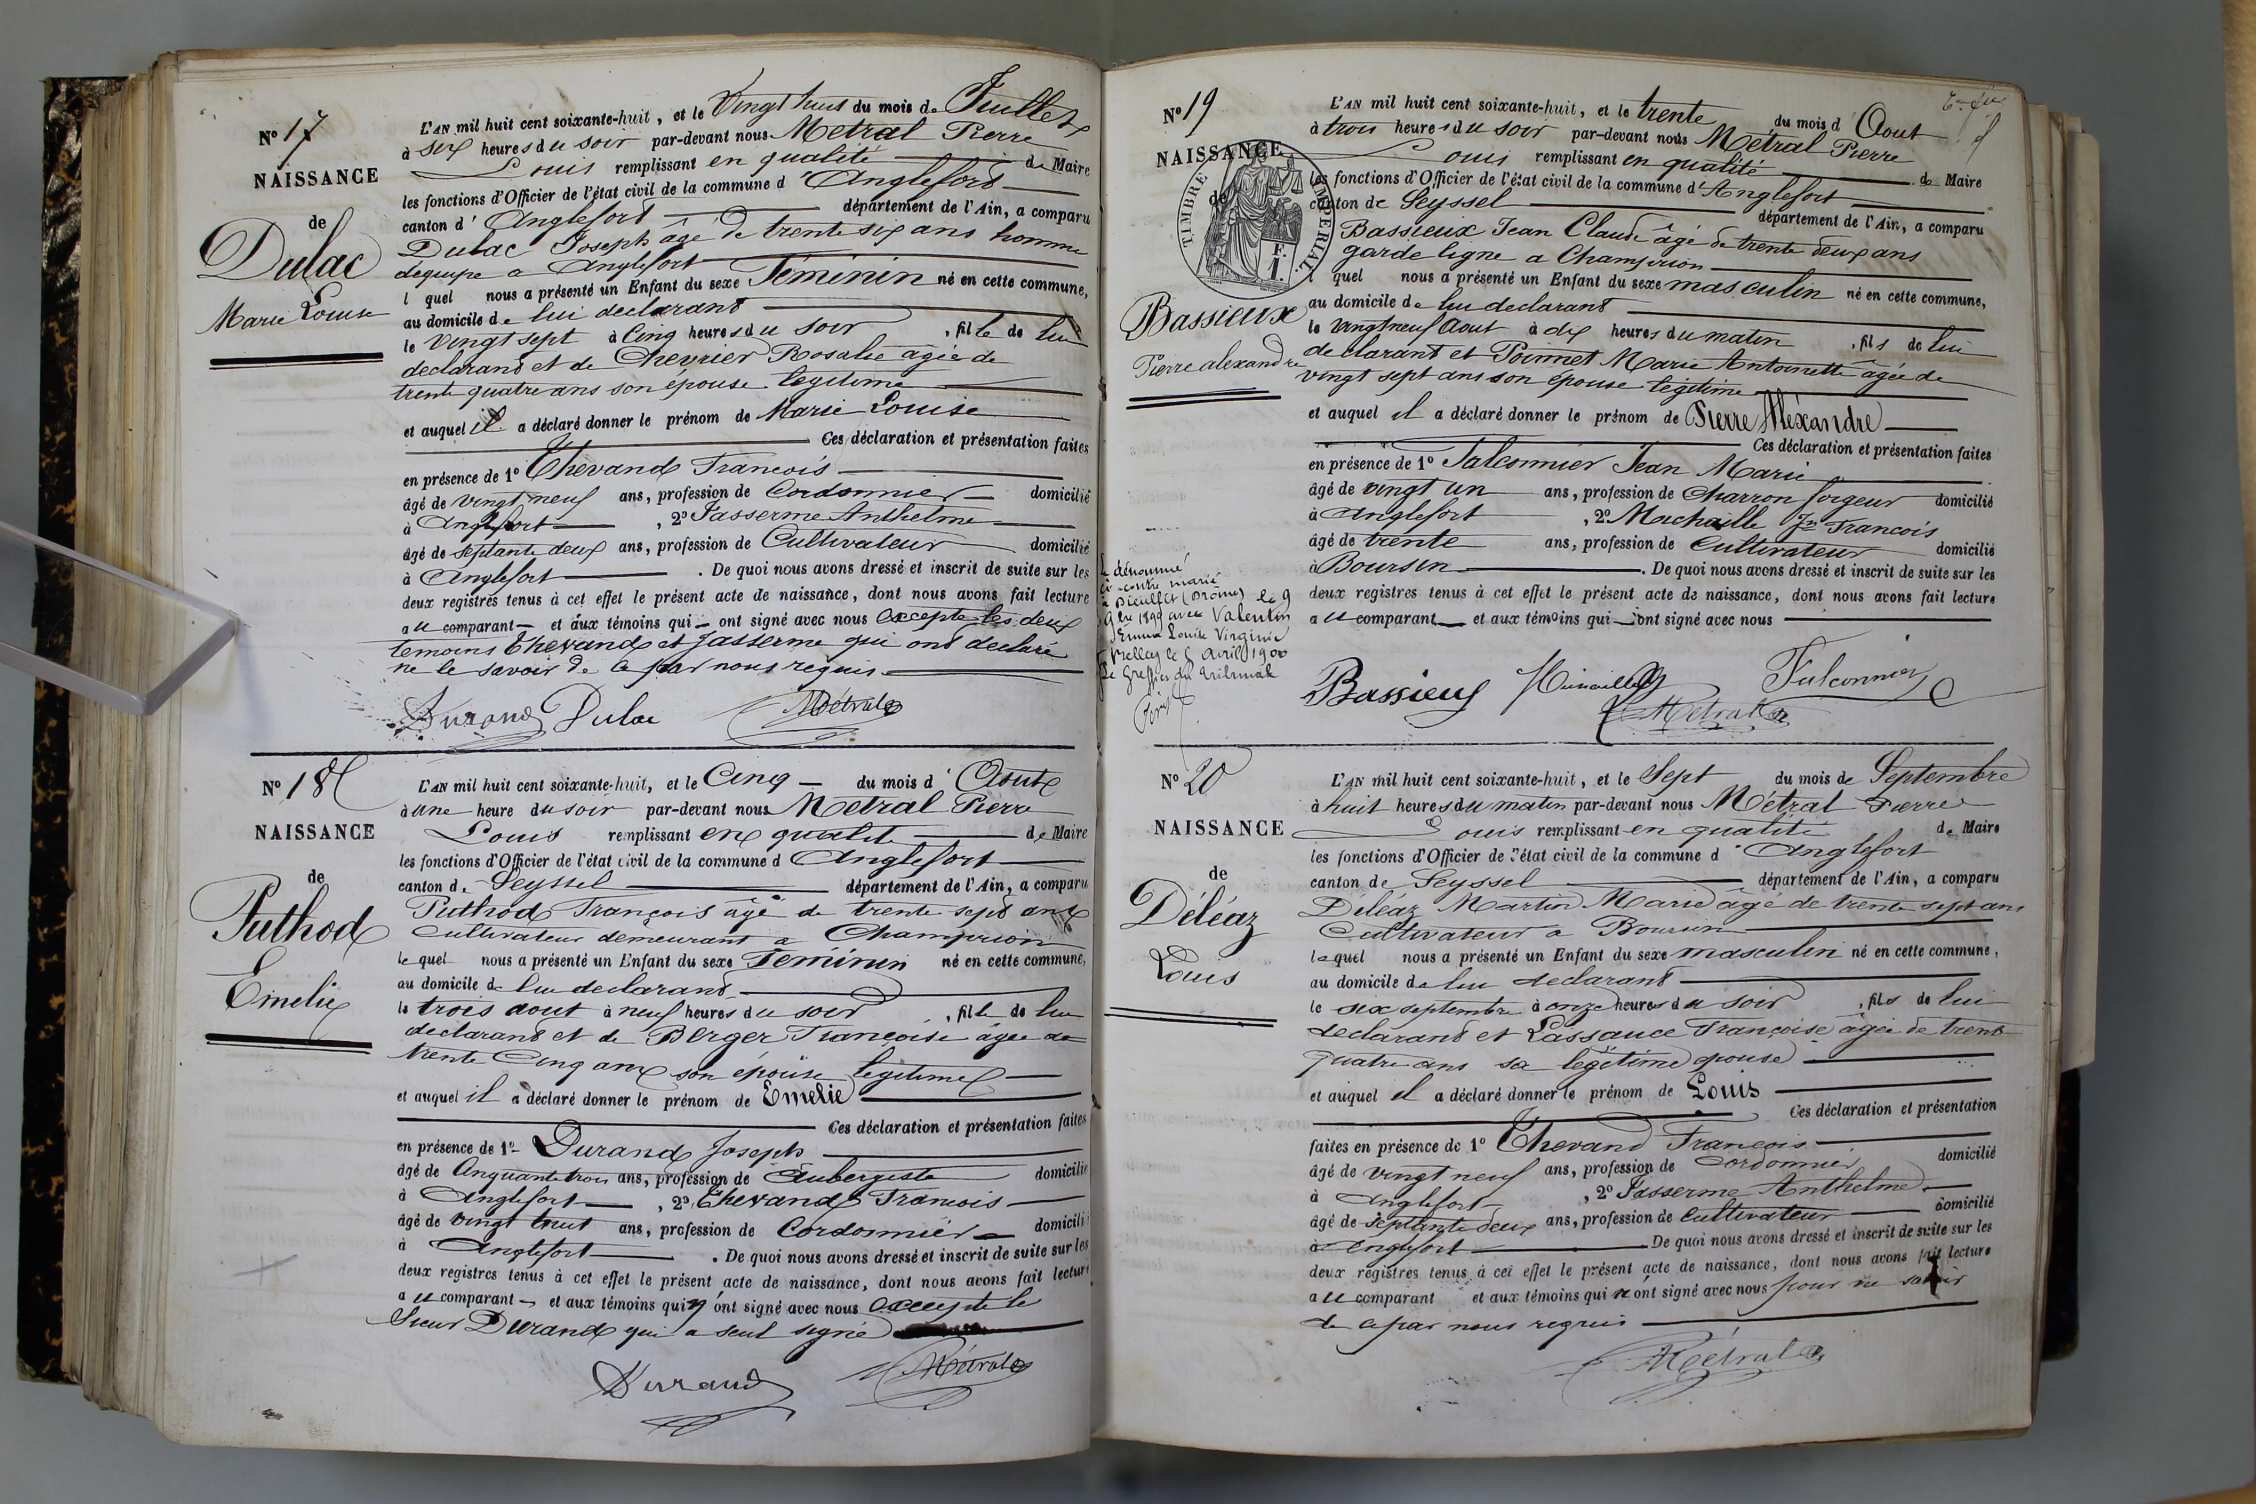 No 17
NAISSANCE
de
Dulac
Marie Louise
L'AN mil huit cent soixante-huit, et le Vingt huit du mois de Juillet
à six heures du soir par-devant nous Métral Pierre
Louis remplissant en qualité de Maire
les fonctions d'Officier de l'état civil de la commune d'Anglefort
canton d'Anglefort département de l'Ain, a comparu
Dulac Joseph âgé de trente six ans homme
déquipe a Anglefort
l quel nous a présenté un Enfant du sexe Féminin né en cette commune,
au domicile de lui declarant
le vingt sept à Cinq heures du soir, fille de lui
declarant et de Chevrier Rosalie âgée de
trente quatre ans son épouse légitime
et auquel il a déclaré donner le prénom de Marie Louise
Ces déclaration et présentation faites
en présence de 1º Thevand Francois
âgé de vingt neuf ans, profession de Cordonnier domicilié
à Anglefort, 2º Jasserme Anthelme
âgé de septante deux ans, profession de Cultivateur domicilié
à Anglefort. De quoi nous avons dressé et inscrit de suite sur les
deux registres tenus à cet effet le présent acte de naissance, dont nous avons fait lecture
au comparant et aux témoins qui ont signé avec nous excepte les deux
temoins Thevand et Jasserme qui ont declaré
ne le savoir de ce par nous requis
Durand Dulac Métral
No 18
NAISSANCE
de
Puthod
Emelie
L'AN mil huit cent soixante-huit, et le Cinq du mois d'Aout
à une heure du soir par-devant nous Métral Pierre
Louis remplissant en qualité de Maire
les fonctions d'Officier de l'état civil de la commune d'Anglefort
canton de Seyssel département de l'Ain, a comparu
Puthod François âgé de trente sept ans
Cultivateur demeurant a Champrion
le quel nous a présenté un Enfant du sexe Féminin né en cette commune,
au domicile de lui declarant
le trois aout à neuf heures du soir, fille de lui
declarant et de Berger Françoise âgée de
trente Cinq ans son épouse légitime
et auquel il a déclaré donner le prénom de Emelie
Ces déclaration et présentation faites
en présence de 1º Durand Joseph
âgé de Cinquante trois ans, profession de Aubergiste domicilié
à Anglefort, 2º Thevand Francois
âgé de vingt huit ans, profession de Cordonnier domicilié
à Anglefort. De quoi nous avons dressé et inscrit de suite sur les
deux registres tenus à cet effet le présent acte de naissance, dont nous avons fait lecture
au comparant et aux témoins qui n'ont signé avec nous excepte le
Sieur Durand qui a seul signé
Durand Métral
No 19
NAISSANCE
de
TIMBRE IMPERIAL
1 F.
Bassieux
Pierre alexandre
L'AN mil huit cent soixante-huit, et le trente du mois d'Aout
à trois heures du soir par-devant nous Métral Pierre
Louis remplissant en qualité de Maire
les fonctions d'Officier de l'état civil de la commune d'Anglefort
canton de Seyssel département de l'Ain, a comparu
Bassieux Jean Claude âgé de trente deux ans
garde ligne a Champrion
l quel nous a présenté un Enfant du sexe masculin né en cette commune,
au domicile de lui declarant
le vingt neuf Aout à dix heures du matin, fils de lui
declarant et Poinnet Marie Antoinette âgée de
vingt sept ans son épouse légitime
et auquel il a déclaré donner le prénom de Pierre Aléxandre
Ces déclaration et présentation faites
en présence de 1º Falconnier Jean Marie
âgé de vingt un ans, profession de Charron forgeur domicilié
à Anglefort, 2º Machaille Jn Francois
âgé de trente ans, profession de Cultivateur domicilié
à Boursin. De quoi nous avons dressé et inscrit de suite sur les
deux registres tenus à cet effet le présent acte de naissance, dont nous avons fait lecture
au comparant et aux témoins qui ont signé avec nous
Le dénommé
ci contre marié
à Dieulefit (Drôme) le 9
1899 avec Valentin
Emma Louise Virginie
Belley le 5 avril 1900
Le Greffier du Tribunal
Bassieux Falconnier
Métral
No 20
NAISSANCE
de
Déléaz
Louis
L'AN mil huit cent soixante-huit, et le Sept du mois de Septembre
à huit heures du matin par-devant nous Métral Pierre
Louis remplissant en qualité de Maire
les fonctions d'Officier de l'état civil de la commune d'Anglefort
canton de Seyssel département de l'Ain, a comparu
Déléaz Martin Marie âgé de trente sept ans
Cultivateur a Boursin
lequel nous a présenté un Enfant du sexe masculin né en cette commune,
au domicile de lui declarant
le six septembre à onze heures du soir, fils de lui
declarant et Lassauce Françoise âgée de trente
quatre ans sa légitime epouse
et auquel il a déclaré donner le prénom de Louis
Ces déclaration et présentation
faites en présence de 1º Thevand Francois
âgé de vingt neuf ans, profession de Cordonnier domicilié
à Anglefort, 2º Jasserme Anthelme
âgé de septante deux ans, profession de Cultivateur domicilié
à Anglefort De quoi nous avons dressé et inscrit de suite sur les
deux registres tenus à cet effet le présent acte de naissance, dont nous avons fait lecture
au comparant et aux témoins qui n'ont signé avec nous pour ne savoir
de ce par nous requis
Métral